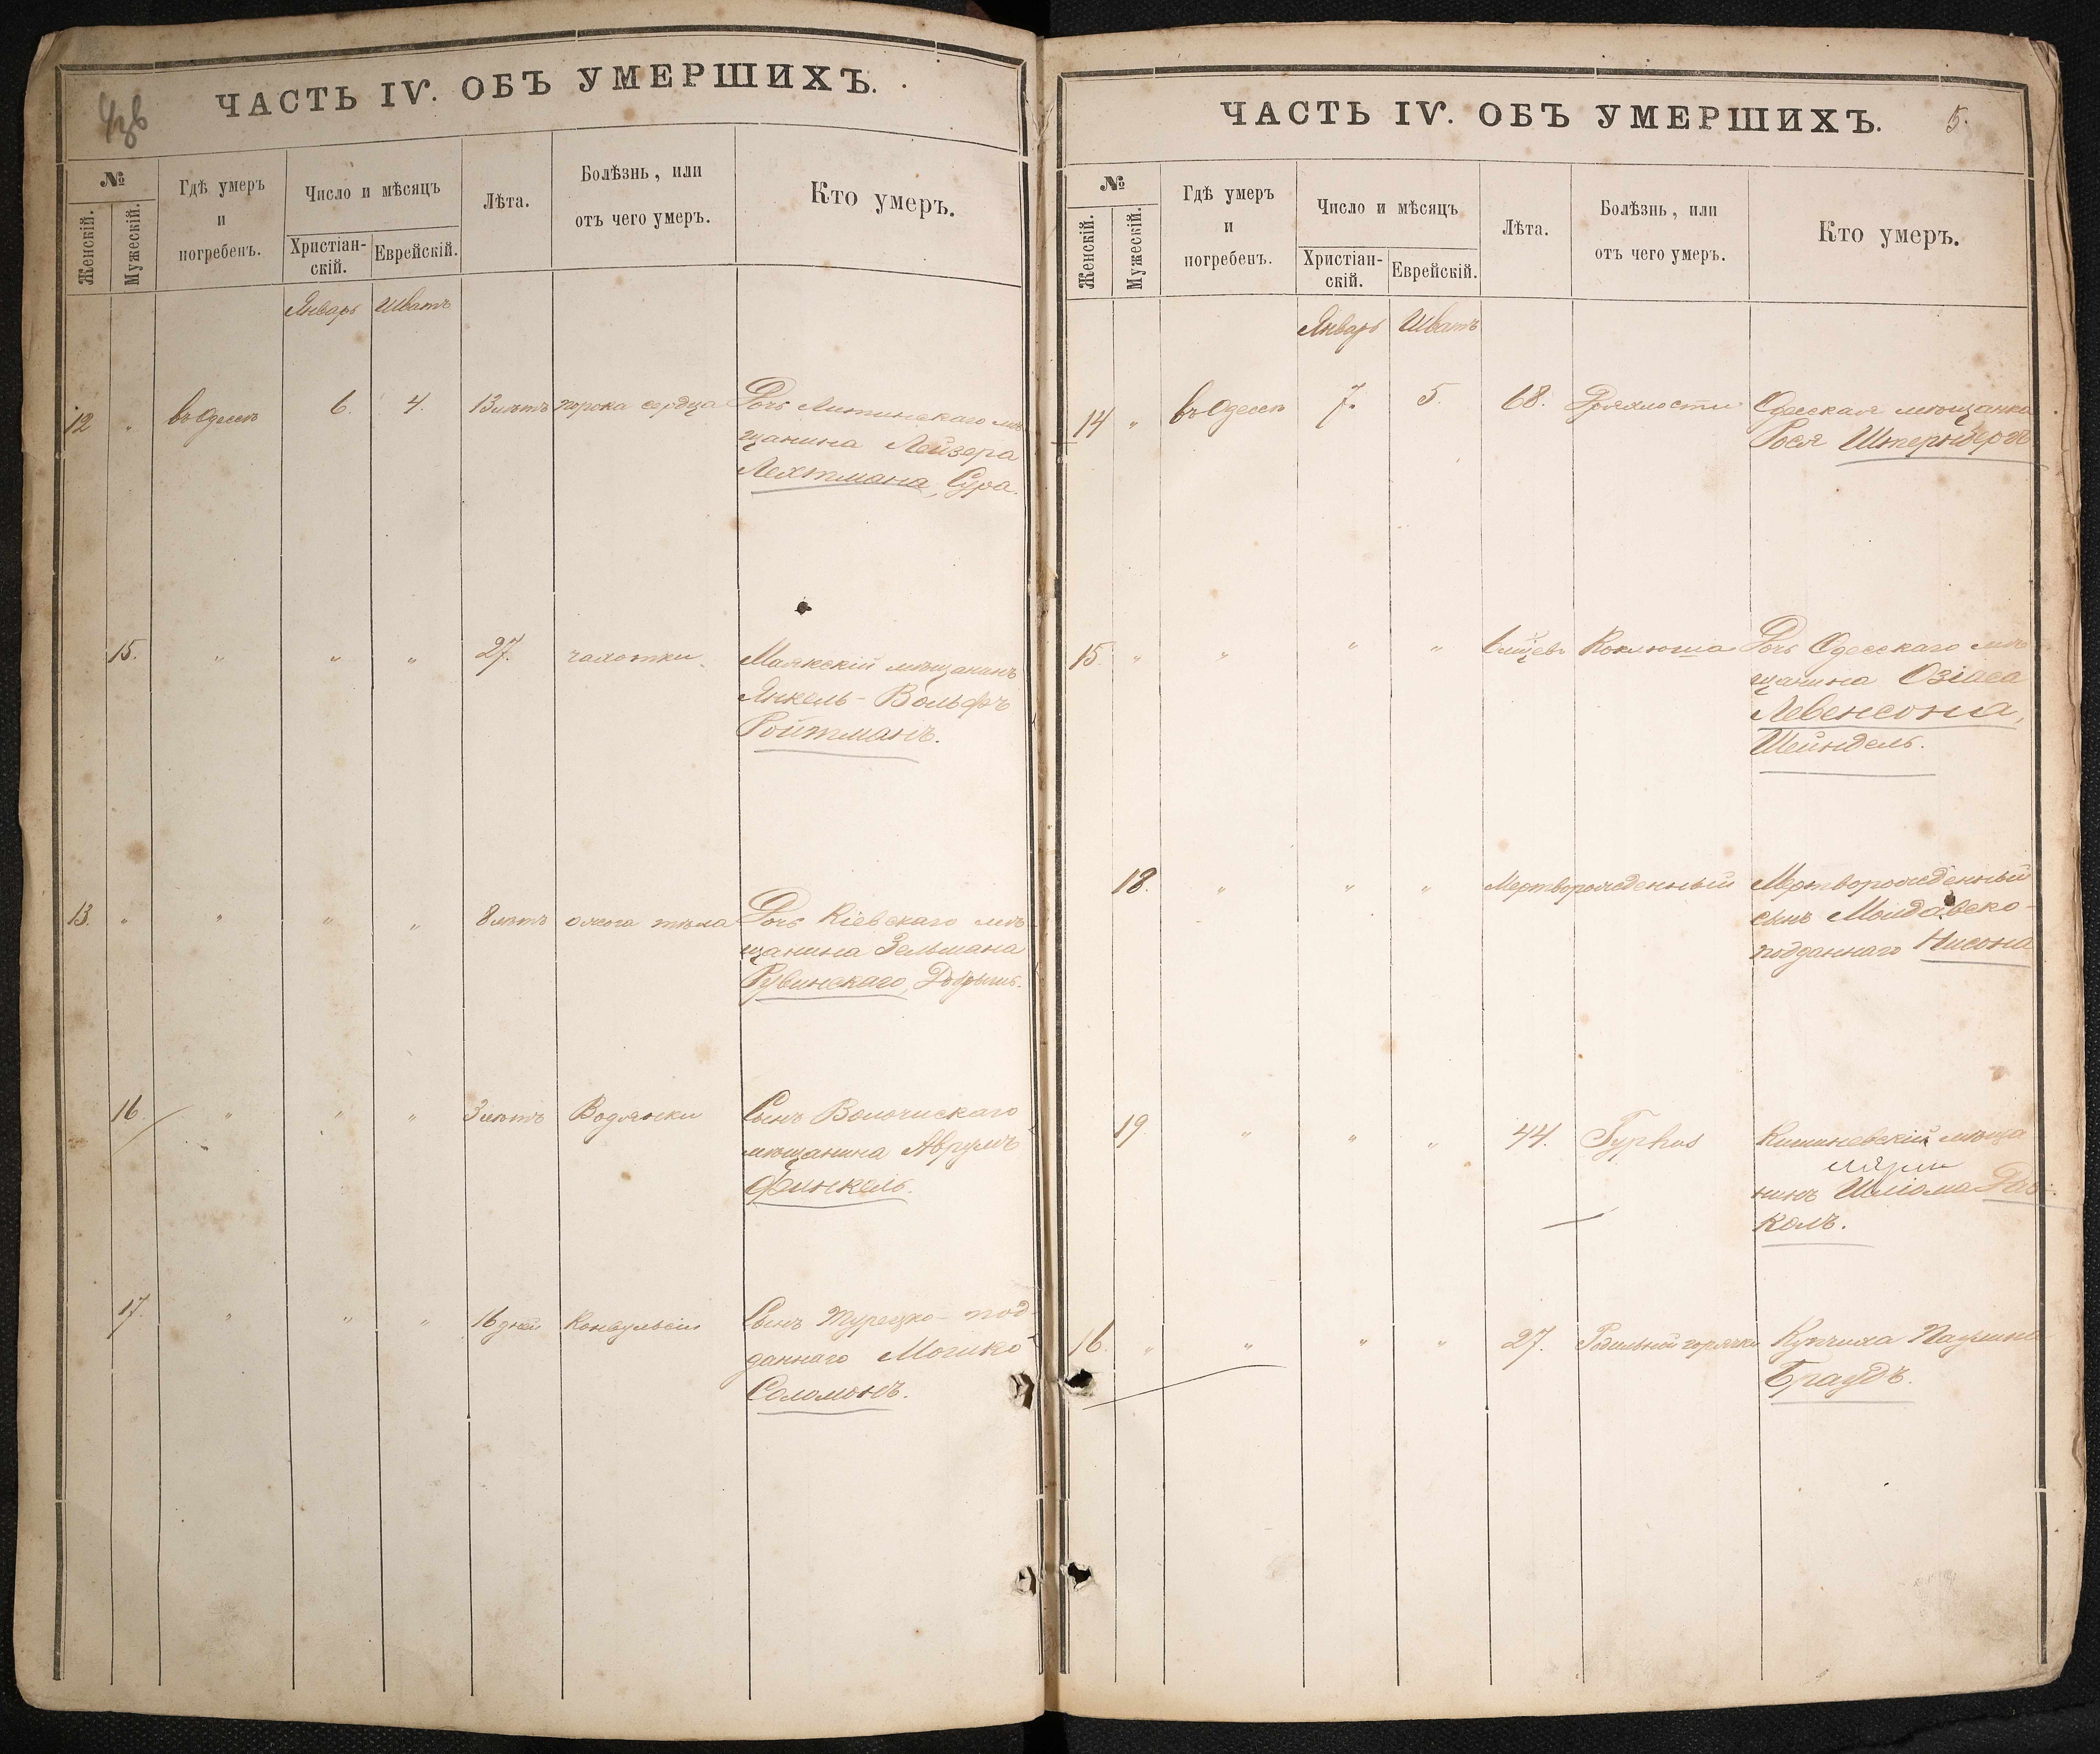 ЧАСТЬ IV. ОБЪ УМЕРШИХЪ.
№
Женскій.
Мужескій.
Гдѣ умеръ
и
погребенъ.
Число и мѣсяцъ
Христіан-
скій.
Еврейскій.
Лѣта.
Болѣзнь, или
отъ чего умеръ.
Кто умеръ.
Январь Шватъ
12 " въ Одессѣ 6. 4. 13 лѣтъ порока сердца Дочь Литинскаго мѣ
щанина Лейзера
Лехтмана, Сура.
15. " " " 27. чахотки Маякскій мѣщанинъ
Янкель-Вольфъ
Ройтманъ.
13. " " " " 8 лѣтъ ожога тѣла Дочь Кіевскаго мѣ
щанина Зельмана
Рувинскаго,
16. " " " 3 лѣтъ Водянки Сынъ
мѣщанина Аврумъ
Финкель.
17. " " " 16 дней Конвульсіи Сынъ Турецко-под
даннаго
Соломонъ.
ЧАСТЬ IV. ОБЪ УМЕРШИХЪ. 5.
№
Женскій.
Мужескій.
Гдѣ умеръ
и
погребенъ.
Число и мѣсяцъ
Христіан-
скій.
Еврейскій.
Лѣта.
Болѣзнь, или
отъ чего умеръ.
Кто умеръ.
Январь Шватъ
14 " въ Одессѣ 7. 5. 68. Дряхлости Одесская мѣщанка
Рося Штернбергъ
15. " " " " Коклюша Дочь Одесскаго мѣ
щанина Озіаса
Левенсона,
Шейндель.
18. " " " Мертворожденный Мертворожденный
сынъ Молдавско-
подданнаго Нисона
19. " " " 44. Typhus Кишиневскій мѣща
нинъ Шліома
колъ.
16. " " " " 27. Родильной горячки Купчиха
Браудъ.